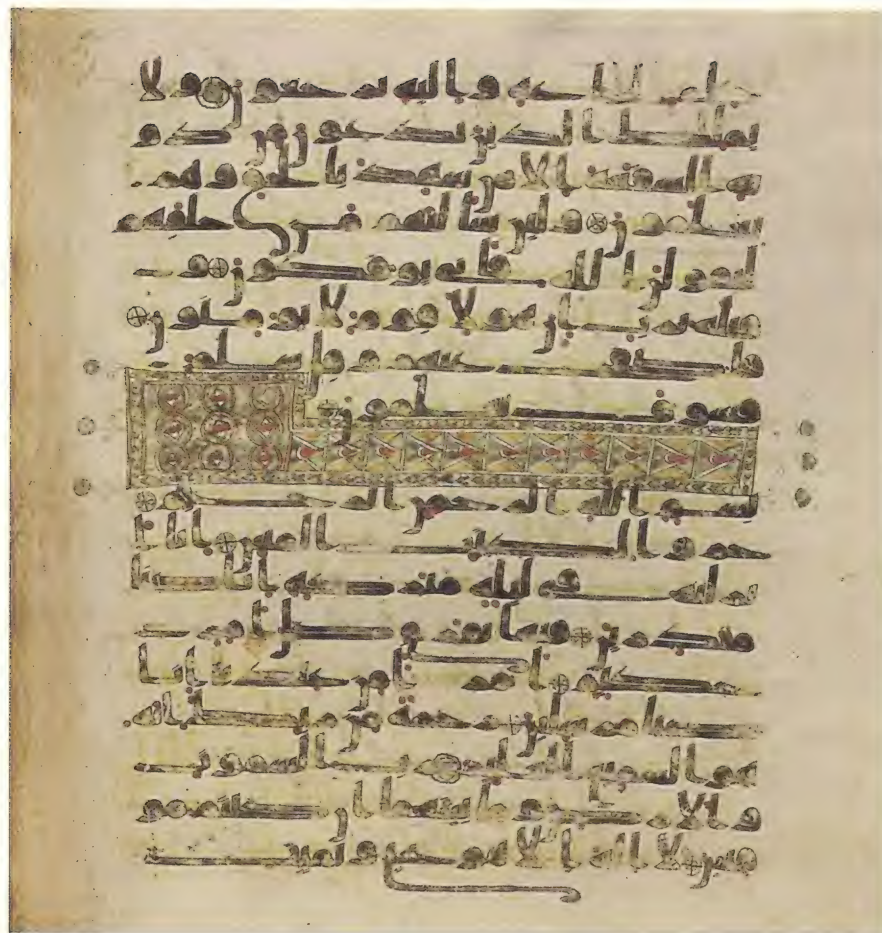 علم الساعة واليه ترجعون ولا
يملك الذين يدعون من دو
نه الشفعة الا من شهد بالحق وهم
يعلمون ولئن سالتهم من خلقهم
ليقولن الله فانى يوفكون و
قيله يرب ان هولا قوم لا يومنون
فاصفح عنهم وقل سلم
فسوف يعلمون
بسم الله الرحمن الرحيم
حم والكتب المبين انا ا
نزلنه في ليلة مبركة انا كنا
منذرين فيها يفرق كل امر
حكيم امرا من عندنا انا كنا
مرسلين رحمة من ربك انه
هو السميع العليم رب السموت
والارض وما بينهما ان كنتم مو
قنين لا اله الا هو يحي ويميت